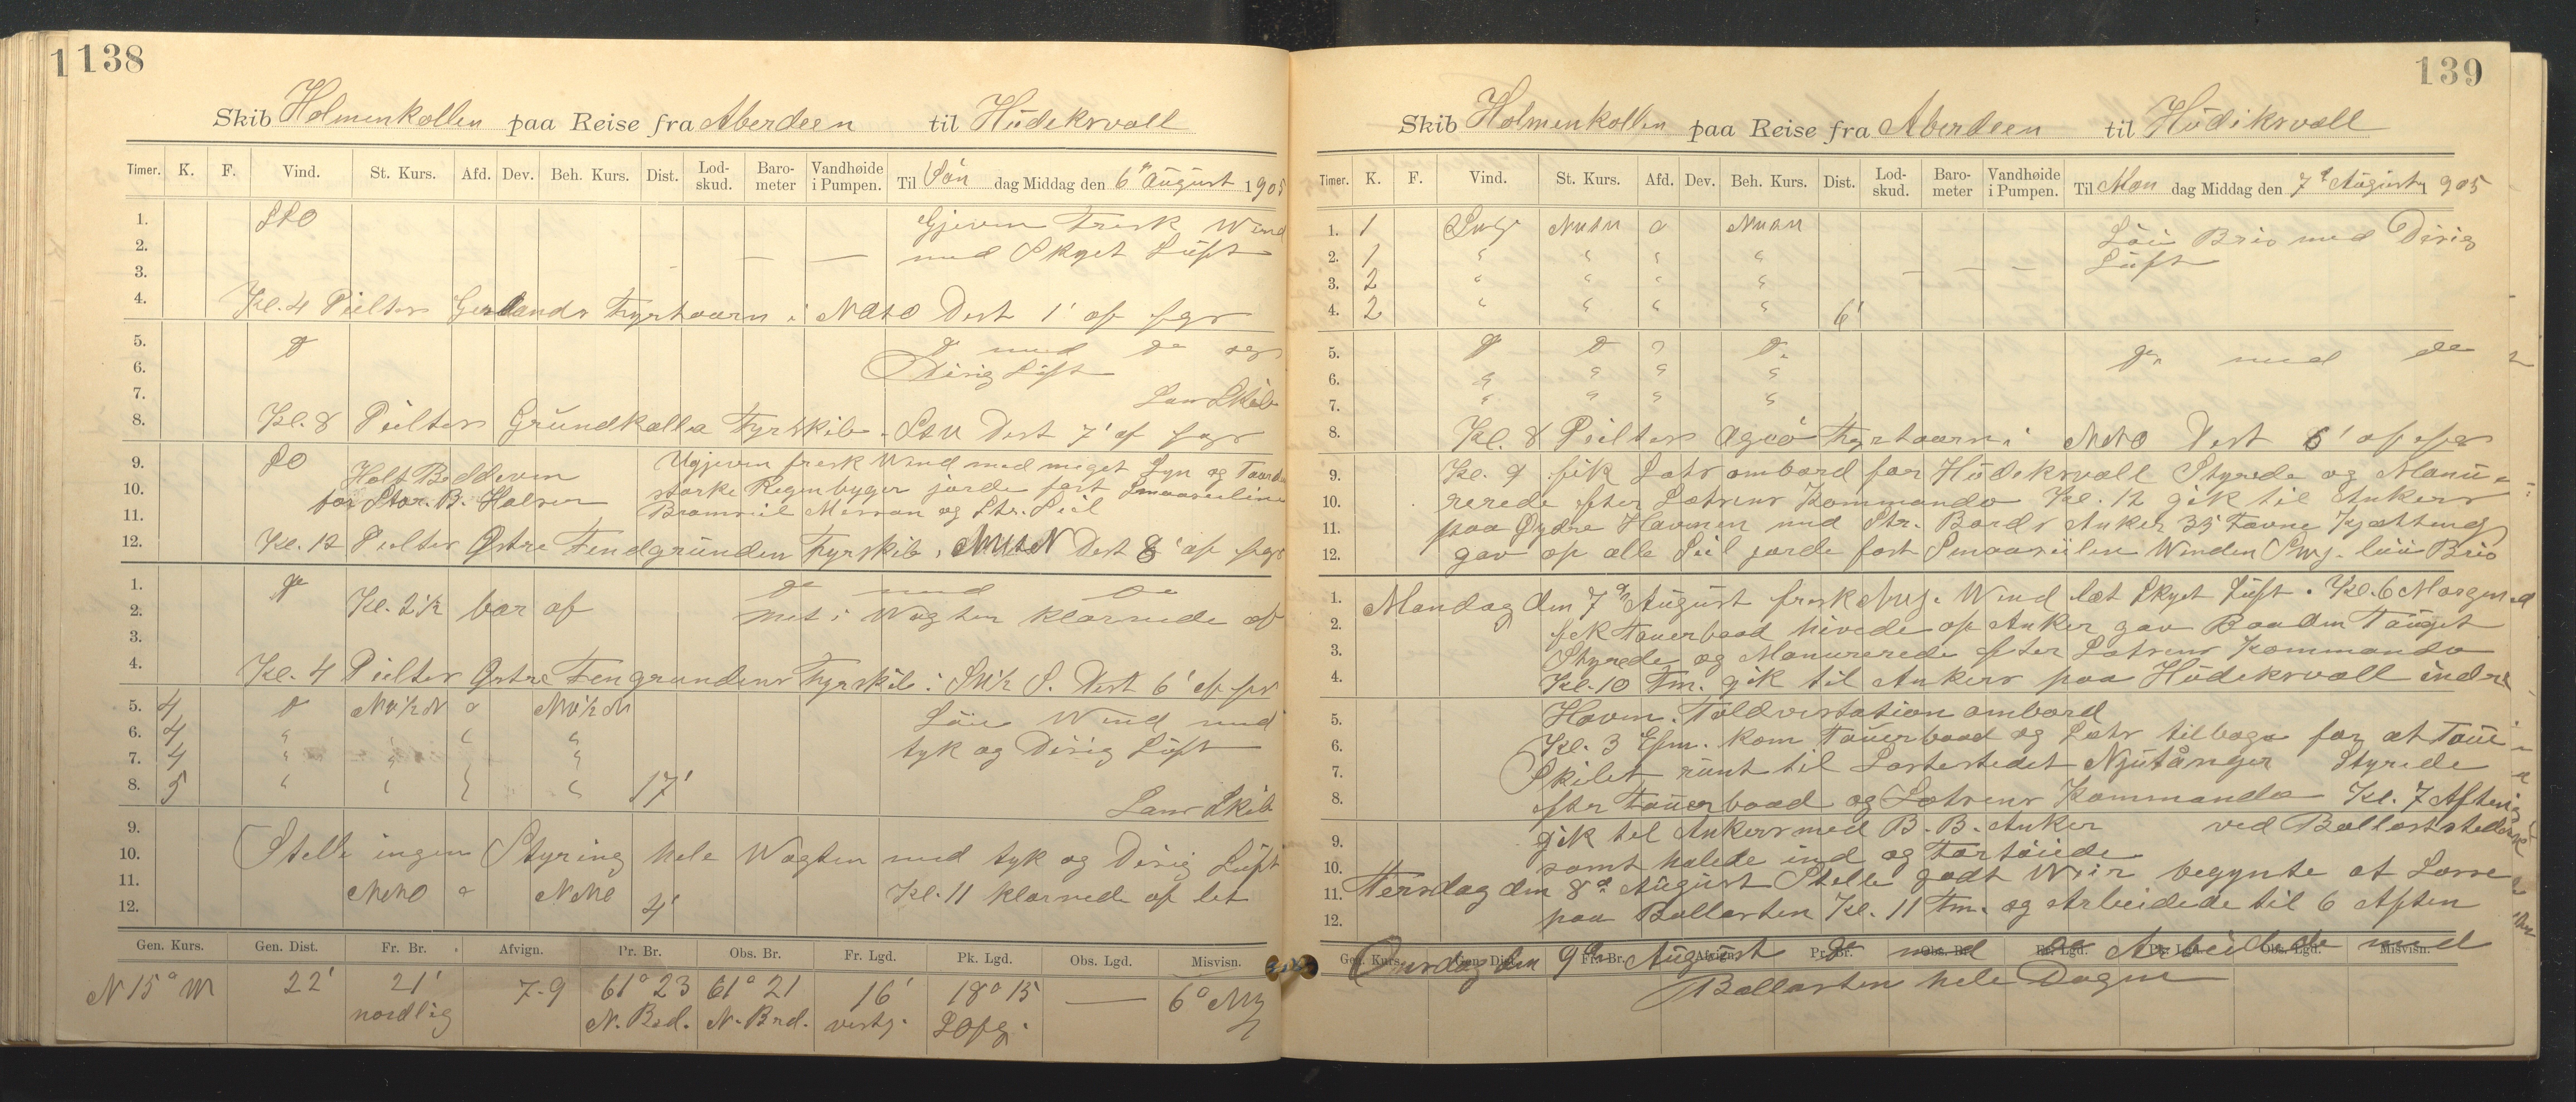 1138
Skib Holmenkollen paa Reise fra Aberdeen til Hüdikrvall
Timer. K. F. Vind. St. Kurs. Afd. Dev. Beh. Kurs. Dist. Lod-skud. Baro-meter Vandhøide i Pumpen. Til Søn dag Middag den 6te August 1905
1. SSO Gjeven Fresk Wind
2. — — med Skyet Lüft
3.
4. Kl. 4 Peilter Fyrtaarn i Dist 1' af fyr
5. do do med do og
6. Disig Lüft
7. Lanr Skib
8. Kl. 8 Peilter Gründkalla Fyrskib Dist 7' af fyr
9. SO Holt Beddeven Ugjeven fresk Wind med meget Lyn og Torden
10. for Stør. B. Halser starke Regenbyger jorde fast Smaaseilene
11. Bramseil Mersan og Str. Seil
12. Kl. 12 Peilter Østre Fendgründen Fyrskib Dist 8' af fyr
1. do do med do
2. Kl. 2½ bar af met i Wagten klarnede af
3.
4. Kl. 4 Peilter Østre Fengrunden Fyrskib i SW½S. Dist 6' af fyr
5. 4 do NW½N o NW½N Løi Wind med
6. 4 " " " " tyk og Disig Lüft
7. 4 " " "
8. 5 " " " " 17' Lanr Skib
9.
10. Stelle ingen Styring hele Wagten med tyk og Disig Lüft
11. NNO o NNO Kl. 11 klarnede af let
12. 4'
Gen. Kurs. Gen. Dist. Fr. Br. Afvign. Pr. Br. Obs. Br. Fr. Lgd. Pk. Lgd. Obs. Lgd. Misvisn.
N 15° W 22' 21' 7-9 61° 23 61° 21 16' 18° 15 — 6°
nordlig N. Brd. N. Brd. vestg.
139
Skib Holmenkollen paa Reise fra Aberdeen til Hüdikrvall
Timer. K. F. Vind. St. Kurs. Afd. Dev. Beh. Kurs. Dist. Lod-skud. Baro-meter Vandhøide i Pumpen. Til Man dag Middag den 7de August 1905
1. 1 o Løi Bris med Disig
2. 1 " " " " Lüft
3. 2 " " " " — — —
4. 2 " " " " 6'
5. do do do do med do
6. " " " "
7. " " " "
8. Kl. 8 Peilter Agöö Fyrtaarn i NNO Dist 6' af fyr
9. Kl. 9 fik Lotr ombord for Hüdikrvall Styrede og Manü-
10. rerede efter Lotrenr Kommando Kl. 12 gik til Ankerr
11. paa Ÿdre Havnen med Str. Bordr Anker 35 Favne Kjætteng
12. gav op alle Seil jorde fast Smaaseilen Winden løü Bris
1. Mandag den 7de August frisk Wind let Skyet Lüft. Kl. 6 Morgen
2. fik Tauerbaad hivede op Anker gav Baaden Tauget
3. Styrede og Manurerede efter Lotrenr Kommando
4. Kl. 10 Fm. gik til Ankerr paa Hüdikrvall indre
5. Havn. Toldvisitation ombord
6. Kl. 3 Efm. kom Tauerbaad og Lotr tilbage for at Taue
7. Skibet runt til Lostestedet Njutånger Styrede
8. efter Tauerbaad og Lotrenr Kommando Kl. 7 Aften
9. gik til Ankerr med B. B. Anker ved Ballaststellet
10. samt halede ind og Fortøiede
11. Tiersdag den 8de August Stelle godt Weir begynte at Losse
12. paa Ballasten Kl. 11 Fm. og Arbeidede til 6 Aften
Gen. Kurs. Gen. Dist. Fr. Br. Afvign. Pr. Br. Obs. Br. Fr. Lgd. Pk. Lgd. Obs. Lgd. Misvisn.
Onsdag den 9de August do med do Arbeidede med
Ballasten hele Dagen